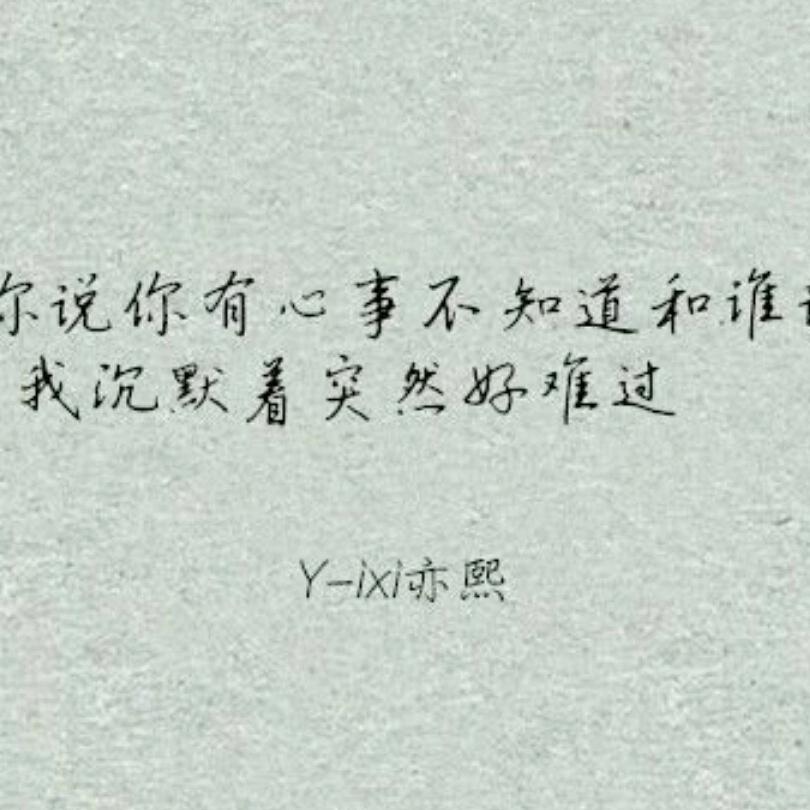 你说你有心事不知道和谁
我沉默着突然好难过
Y-ixi亦熙